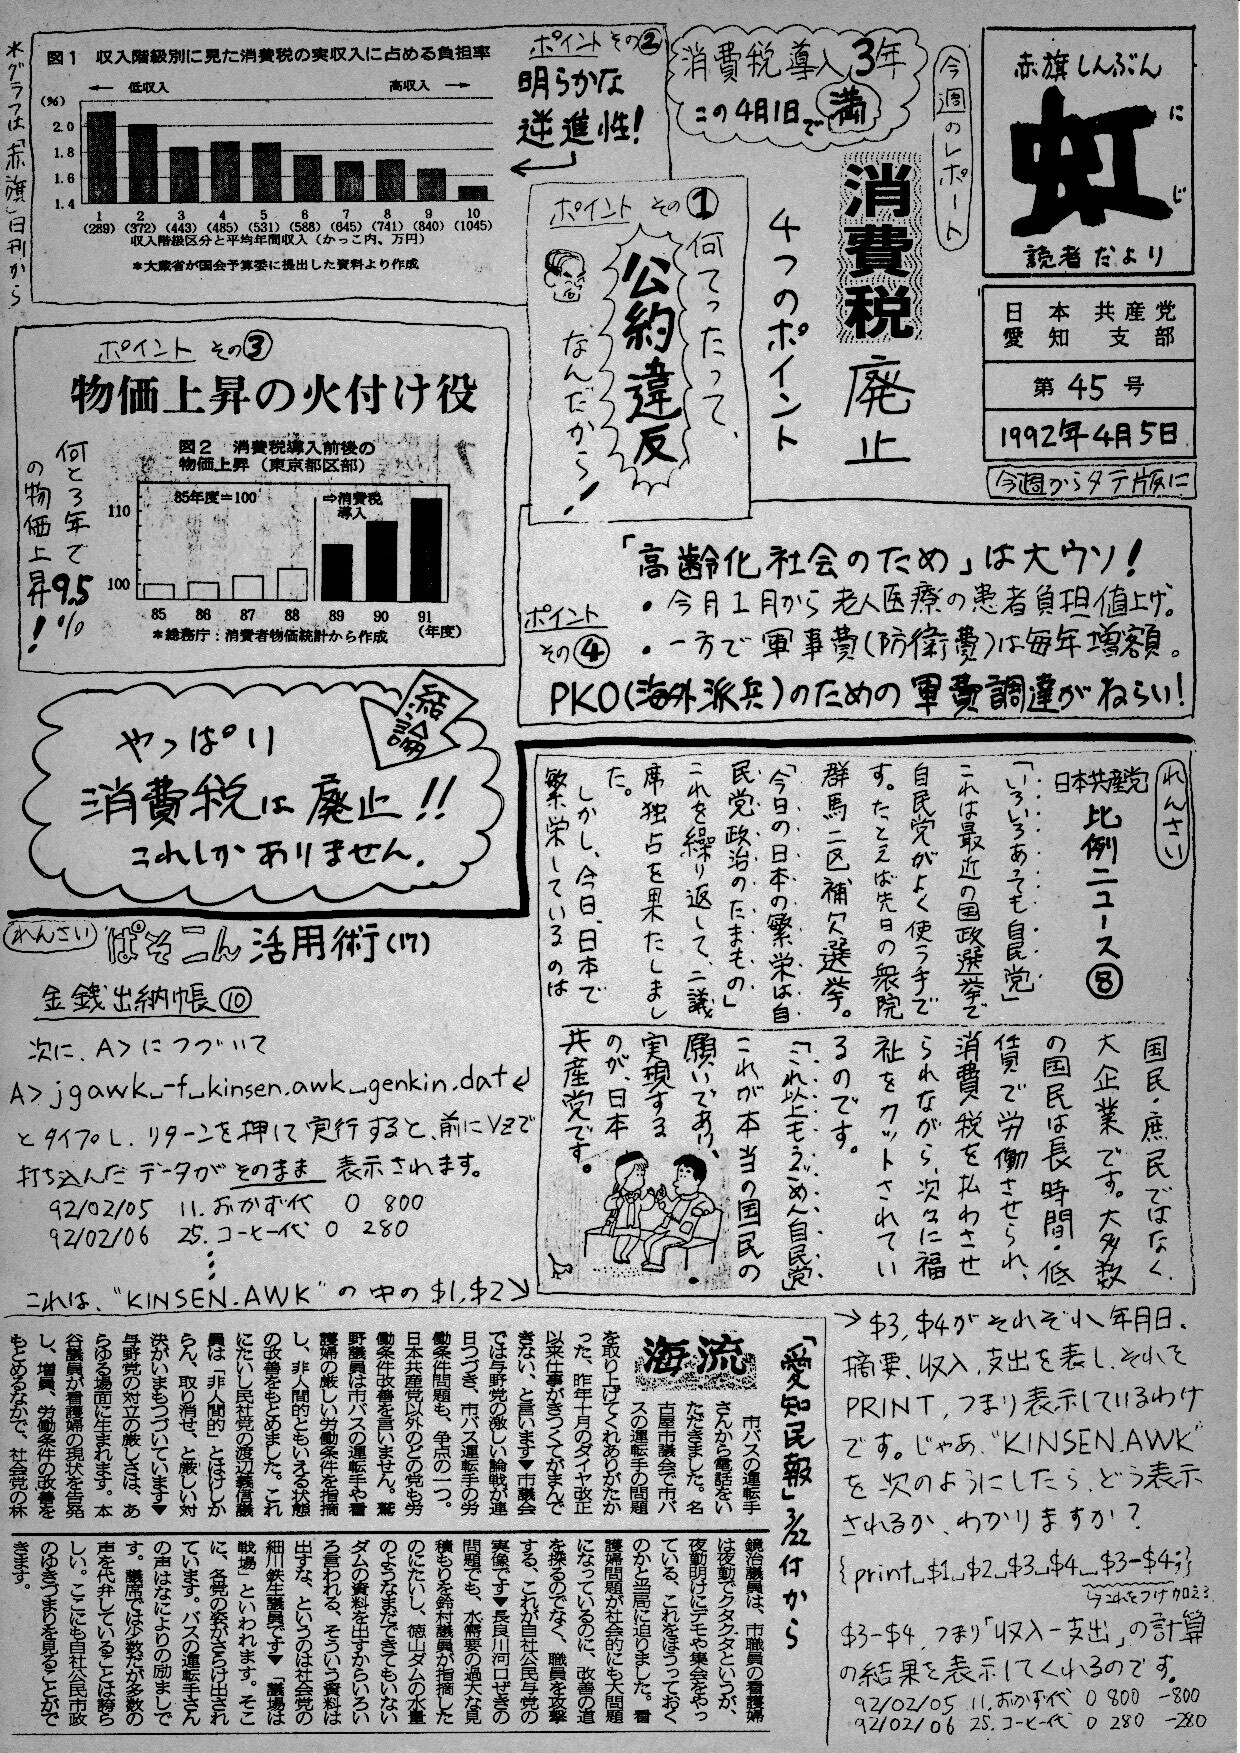 赤旗しんぶん
虹
にじ
読者だより
日本共産党
愛知支部
第45号
1992年4月5日
今週からタテ版に
今週のレポート
消費税導入3年
この4月1日で満
消費税廃止
4つのポイント
ポイントその①
何てったって、
公約違反
なんだから!
ポイントその②
明らかな
逆進性!
図1 収入階級別に見た消費税の実収入に占める負担率
← 低収入 高収入 →
(%)
2.0
1.8
1.6
1.4
1 2 3 4 5 6 7 8 9 10
(289) (372) (443) (485) (531) (588) (645) (741) (840) (1045)
収入階級区分と平均年間収入(かっこ内、万円)
*大蔵省が国会予算委に提出した資料より作成
*グラフは「赤旗」日刊から
ポイントその③
物価上昇の火付け役
何と3年で9.5%
の物価上昇!
図2 消費税導入前後の
物価上昇(東京都区部)
85年度=100
⇒消費税
導入
110
100
85 86 87 88 89 90 91
(年度)
*総務庁:消費者物価統計から作成
ポイント
その④
「高齢化社会のため」は大ウソ!
・今月1月から老人医療の患者負担値上げ。
・一方で軍事費(防衛費)は毎年増額。
PKO(海外派兵)のための軍費調達がねらい!
結論
やっぱり
消費税は廃止!!
これしかありません.
れんさい
日本共産党
比例ニュース⑧
「いろいろあっても自民党」
これは最近の国政選挙で
自民党がよく使う手で
す。たとえば先日の衆院
群馬二区補欠選挙。
「今日の日本の繁栄は自
民党政治のたまもの」
これを繰り返して、二議
席独占を果たしまし
た。
しかし、今日、日本で
繁栄しているのは
国民・庶民ではなく、
大企業です。大多数
の国民は長時間・低
賃で労働させられ、
消費税を払わさせ
られながら、次々に福
祉をカットされてい
るのです。
「これ以上もうごめん自民党」
これが本当の国民の
願いであり、
実現する
のが、日本
共産党です。
れんさい
ぱそこん活用術(17)
金銭出納帳⑩
次に、A>につづいて
A>jgawk␣-f␣kinsen.awk␣genkin.dat↵
とタイプし、リターンを押して実行すると、前にVZで
打ち込んだデータがそのまま表示されます。
92/02/05 11.おかず代 0 800
92/02/06 25.コーヒー代 0 280
⋮
これは、"KINSEN.AWK"の中の$1,$2→
→$3,$4がそれぞれ年月日、
摘要、収入、支出を表し、それを
PRINT、つまり表示しているわけ
です。じゃあ、"KINSEN.AWK"
を次のようにしたら、どう表示
されるか、わかりますか?
{print␣$1␣$2␣$3␣$4␣$3-$4;}
今これをつけ加える
$3-$4、つまり「収入-支出」の計算
の結果を表示してくれるのです。
92/02/05 11.おかず代 0 800 -800
92/02/06 25.コーヒー代 0 280 -280
「愛知民報」3/22付から
海流
市バスの運転手
さんから電話をいた
だきました。名
古屋市議会で市バ
スの運転手の問題
を取り上げてくれありがたか
った、昨年十月のダイヤ改正
以来仕事がきつくてがまんで
きない、と言います▼市議会
では与野党の激しい論戦が連
日つづき、市バス運転手の労
働条件問題も、争点の一つ。
日本共産党以外のどの党も労
働条件改善を言いません。鷲
野議員は市バスの運転手や看
護婦の厳しい労働条件を指摘
し、非人間的ともいえる状態
の改善をもとめました。これ
にたいし民社党の渡辺義信議
員は「非人間的」とはけしか
らん、取り消せ、と厳しい対
決がいまもつづいています▼
与野党の対立の厳しさは、あ
らゆる場面に生まれます。本
谷議員が看護婦の現状を告発
し、増員、労働条件の改善を
もとめるなかで、社会党の林
鏡治議員は、市職員の看護婦
は夜勤でクタクタというが、
夜勤明けにデモや集会をやっ
ている、これをほうっておく
のかと当局に迫りました。看
護婦問題が社会的にも大問題
になっているのに、改善の道
を探るのでなく、職員を攻撃
する、これが自社公民与党の
実像です▼長良川河口ぜきの
問題でも、水需要の過大な見
積もりを鈴村議員が指摘した
のにたいし、徳山ダムの水量
のようなまだできてもいない
ダムの資料を出すからいろい
ろ言われる、そういう資料は
出すな、というのは社会党の
細川鉄生議員です▼「議場は
戦場」といわれます。そこ
に、各党の姿がさらけ出され
ています。バスの運転手さん
の声はなによりの励ましで
す。議席では少数だが多数の
声を代弁していることは誇ら
しい。ここにも自社公民市政
のゆきづまりを見ることがで
きます。